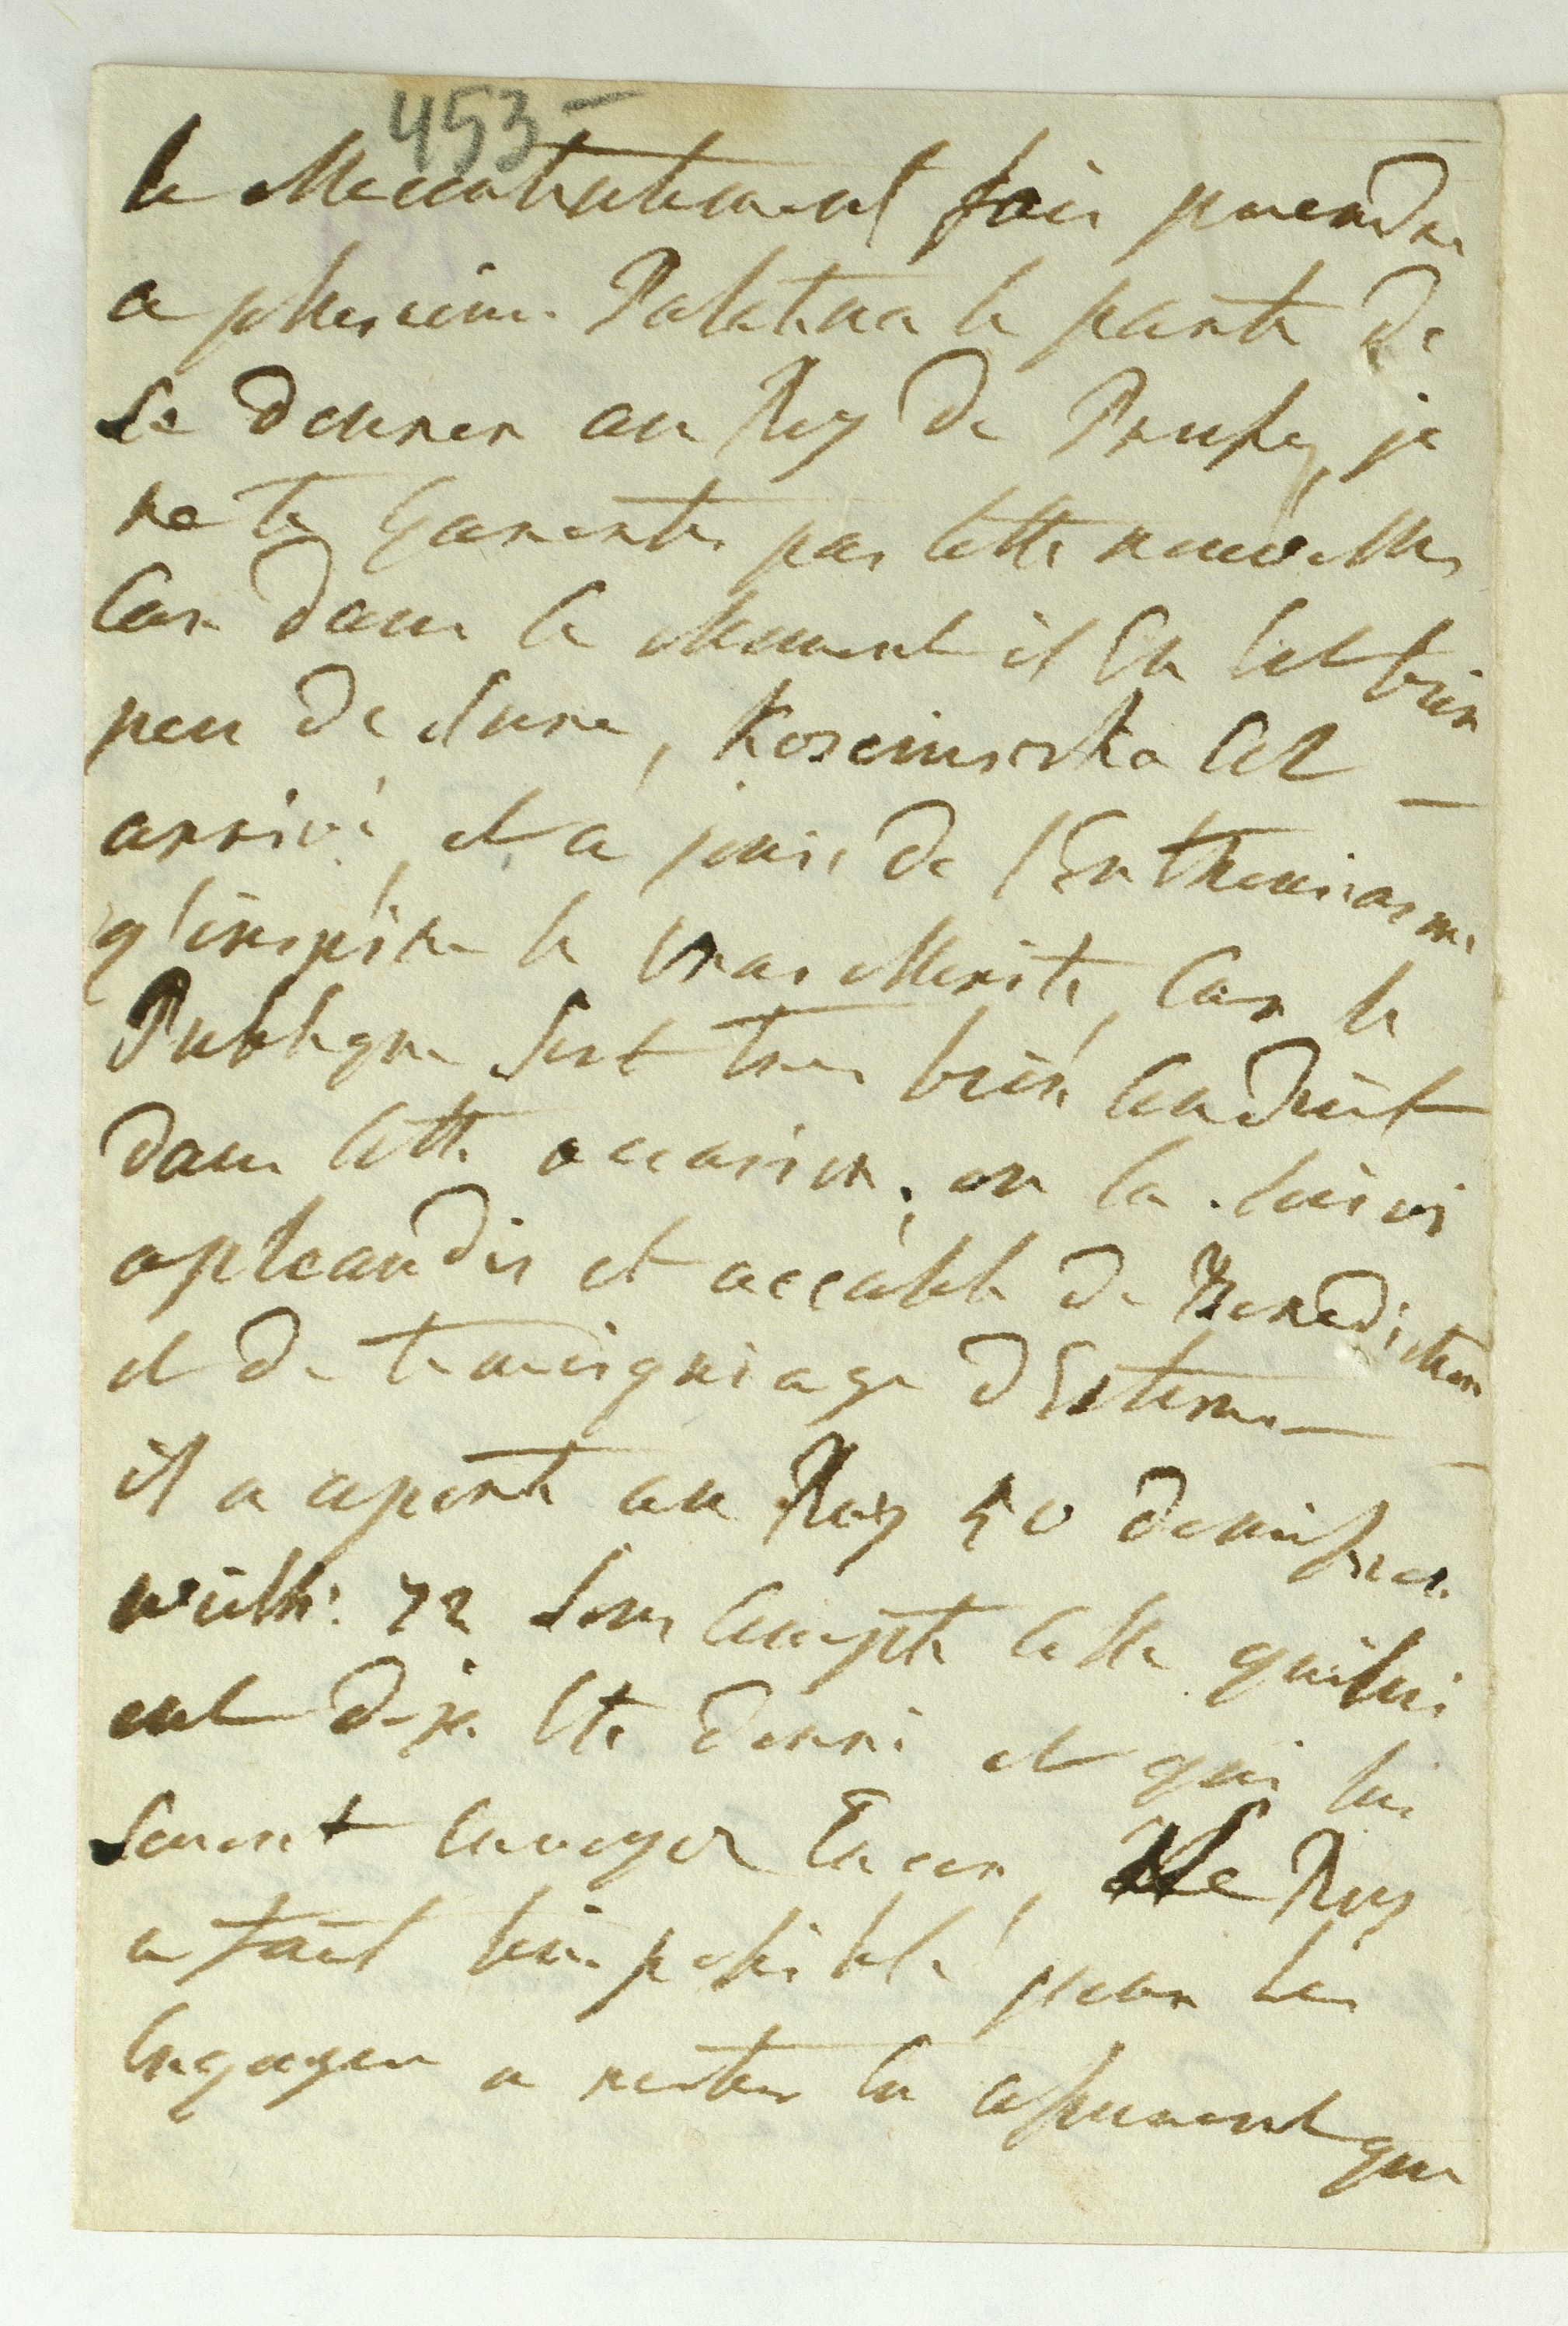 453 –
le Mecontentement fais prendre
a plusieurs Palatina le partie de
se donner au Roy de Prusse, je
ne te Garentis pas cette nouvelle
Car dans ce Moment il En Est bien
peu de sure, Kosciuszka Est
arrivé, et a jouis de l'Enthousiasme
q'inspire le vrai Merite, Car le
Publique s'est tres bien conduit
dans cette occasion, on la suivi
aplaudis et accablé de Benediction
et de temoigniage d'Esteme
il a aporté au Roy 50 demission
72 sans compte celle qui lui
ont deja Eté donné et qui lui
seront envoyer Encor, Le Roy
a fait l'inpossible pour les
Engager a rester en assurent que